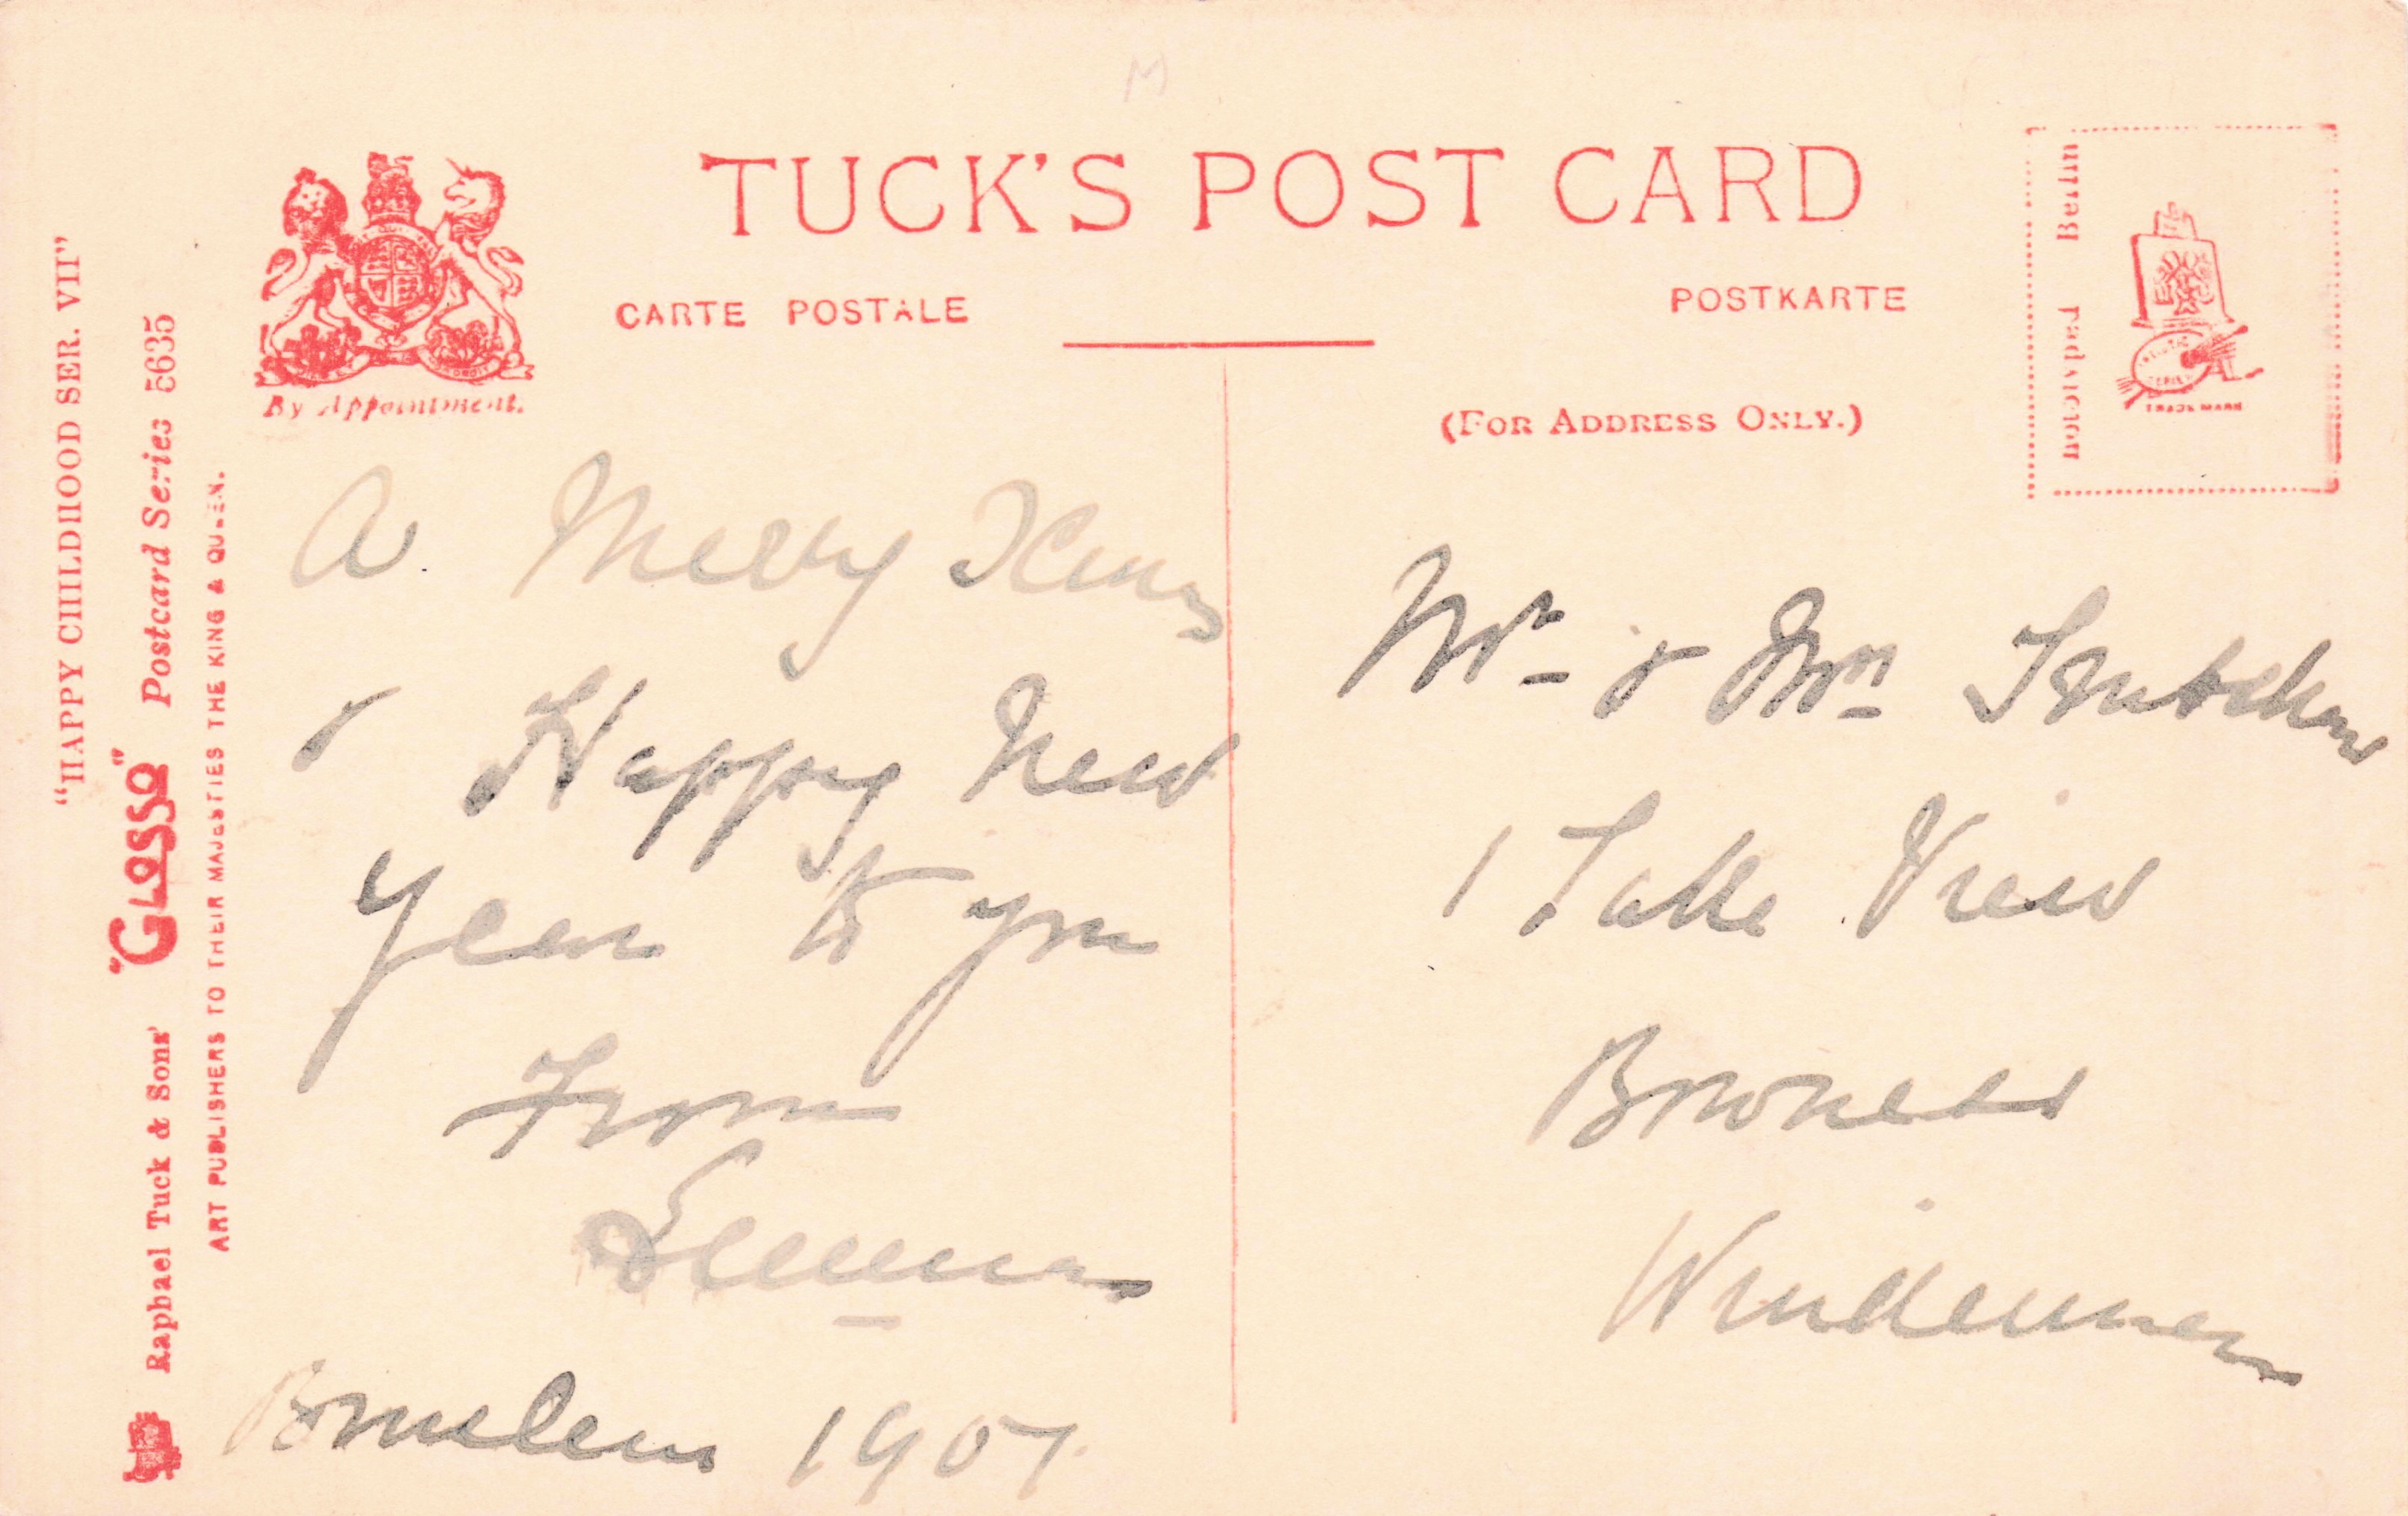 M
TUCK'S POST CARD
CARTE POSTALE
POSTKARTE
By Appointment.
(FOR ADDRESS ONLY.)
Photolyped Berlin
TRADE MARK
"HAPPY CHILDHOOD SER. VII"
Raphael Tuck & Sons' "GLOSSO" Postcard Series 5635
ART PUBLISHERS TO THEIR MAJESTIES THE KING & QUEEN.
A Merry Xmas
& Happy New
Year to you
From
Emma
1907.
Mr & Mrs
1 Lake View
Bowness
Windermere